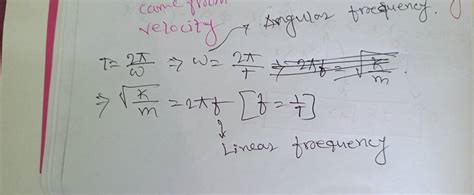 came from
velocity
Angular frequency.
T = 2π/ω ⇒ ω = 2π/T ⇒ 2πf = √(K/m)
⇒ √(K/m) = 2πf [f = 1/T]
Linear frequency